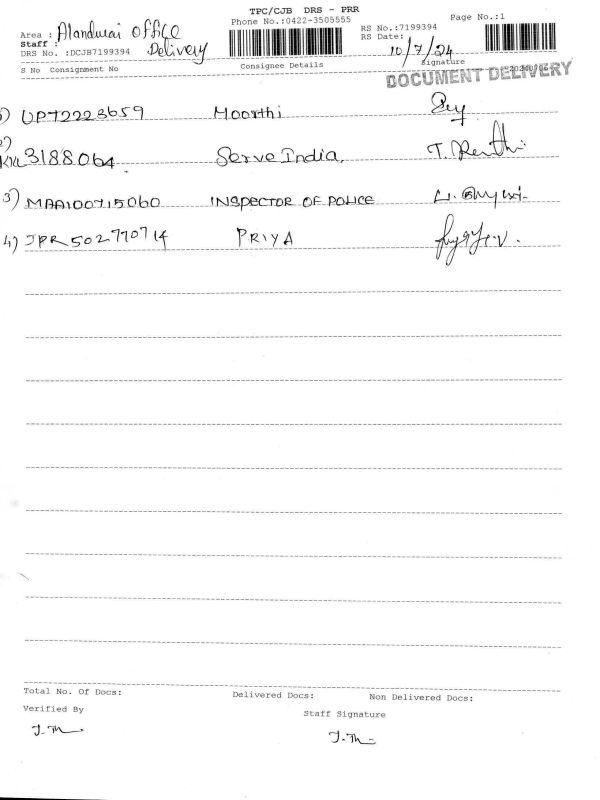 TPC/CJB DRS - PRR
Phone No.:0422-3505555
Page No.:1
Area : Alandurai Office
RS No.:7199394
Staff : Delivery
RS Date: 10/7/24
DRS No. :DCJB7199394
Signature
S No Consignment No Consignee Details
DOCUMENT DELIVERY
1) UP72223659 Moorthi
2) 3188064 Serve India,
3) MAA100715060 INSPECTOR OF POLICE
4) JPR502770714 PRIYA
Total No. Of Docs: Delivered Docs: Non Delivered Docs:
Verified By Staff Signature